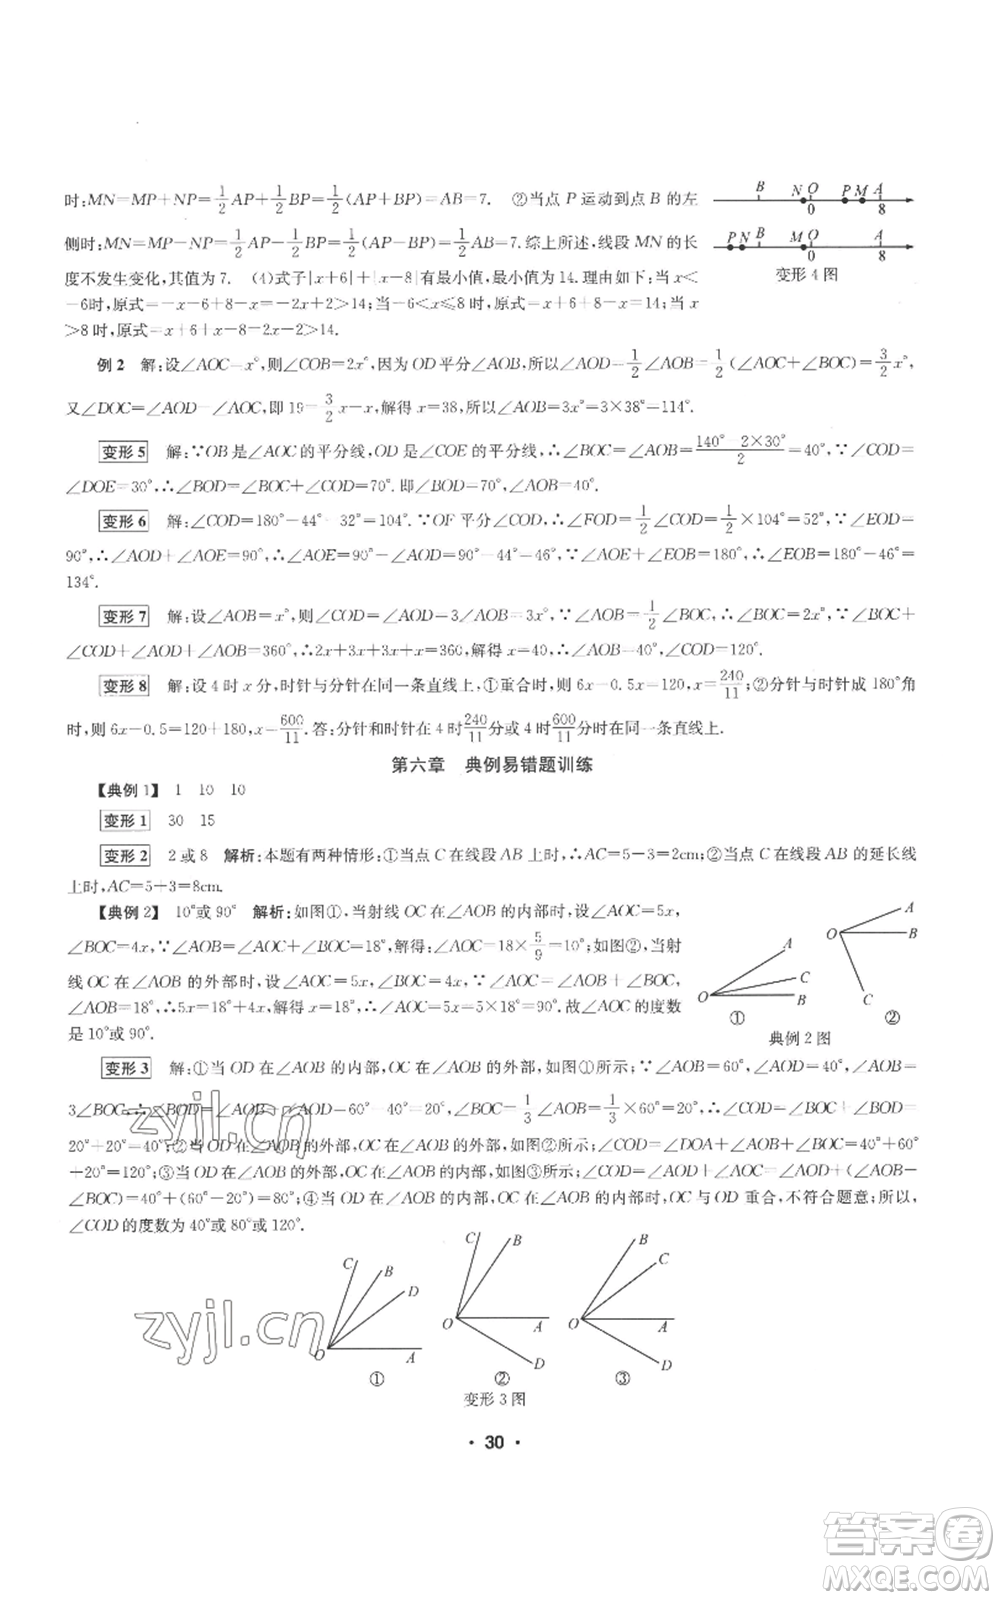 时:MN=MP+NP=1/2AP+1/2BP=1/2(AP+BP)=AB=7. ②当点 P 运动到点 B 的左
侧时:MN=MP-NP=1/2AP-1/2BP=1/2(AP-BP)=1/2AB=7.综上所述,线段 MN 的长
度不发生变化,其值为 7. (4)式子|x+6|+|x-8|有最小值,最小值为 14.理由如下:当 x<
-6时,原式=-x-6+8-x=2-2x>14;当-6<x≤8时,原式=x+6+8-x=14;当 x
>8时,原式=x+6+x-8=2x-2>14.
B N O P M A
0 8
P N B M O A
0 8
变形 4 图
例 2 解:设∠AOC=x°,则∠COB=2x°,因为 OD 平分∠AOB,所以∠AOD=1/2∠AOB=1/2(∠AOC+∠BOC)=3/2x°,
又∠DOC=∠AOD-∠AOC,即 19=3/2x-x,解得 x=38,所以∠AOB=3x°=3×38°=114°.
变形 5 解:∵OB 是∠AOC的平分线,OD 是∠COE的平分线,∴∠AOB=∠BOC=(140°-2×30°)/2=40°,∠COD=
∠DOE=30°,∴∠BOD=∠BOC+∠COD=70°.即∠BOD=70°,∠AOB=40°.
变形 6 解:∠COD=180°-44°-32°=104°.∵OF 平分∠COD,∴∠FOD=1/2∠COD=1/2×104°=52°,∵∠EOD=
90°,∴∠AOD+∠AOE=90°,∴∠AOE=90°-∠AOD=90°-44°=46°,∵∠AOE+∠EOB=180°,∴∠EOB=180°-46°=
134°.
变形 7 解:设∠AOB=x°,则∠COD=∠AOD=3∠AOB=3x°,∵∠AOB=1/2∠BOC,∴∠BOC=2x°,∵∠BOC+
∠COD+∠AOD+∠AOB=360°,∴2x+3x+3x+x=360°,解得 x=40,∴∠AOB=40°,∠COD=120°.
变形 8 解:设 4 时 x 分,时针与分针在同一条直线上,①重合时,则 6x-0.5x=120,x=240/11;②分针与时针成 180°角
时,则 6x-0.5=120+180,x=600/11.答:分针和时针在 4 时240/11分或 4 时600/11分时在同一条直线上.
第六章 典例易错题训练
【典例 1】 1 10 10
变形 1 30 15
变形 2 2 或 8 解析:本题有两种情形:①当点 C 在线段 AB 上时,∴AC=5-3=2cm;②当点 C 在线段 AB 的延长线
上时,AC=5+3=8cm.
【典例 2】 10°或 90° 解析:如图①,当射线 OC 在∠AOB 的内部时,设∠AOC=5x,
∠BOC=4x,∵∠AOB=∠AOC+∠BOC=18°,解得:∠AOC=18×5/9=10°;如图②,当射
线 OC 在∠AOB 的外部时,设∠AOC=5x,∠BOC=4x,∵∠AOC=∠AOB+∠BOC,
∠AOB=18°,∴5x=18°+4x,解得:x=18°,∴∠AOC=5x=5×18°=90°.故∠AOC的度数
是 10°或 90°.
A C B O ①
A B O C ②
典例 2 图
变形 3 解:①当 OD 在∠AOB 的内部,OC 在∠AOB 的外部,如图①所示;∵∠AOB=60°,∠AOD=40°,∠AOB=
3∠BOC,∴∠BOD=∠AOB-∠AOD=60°-40°=20°,∠BOC=1/3∠AOB=1/3×60°=20°,∴∠COD=∠BOC+∠BOD=
20°+20°=40°;②当 OD 在∠AOB 的外部,OC在∠AOB 的外部,如图②所示;∠COD=∠DOA+∠AOB+∠BOC=40°+60°
+20°=120°;③当 OD 在∠AOB 的外部,OC在∠AOB 的内部,如图③所示;∠COD=∠AOD+∠AOC=∠AOD+(∠AOB
-∠BOC)=40°+(60°-20°)=80°;④当 OD 在∠AOB 的内部,OC 在∠AOB 的内部时,OC 与 OD 重合,不符合题意;所以,
∠COD的度数为 40°或 80°或 120°.
C B D O A ①
C B O A D ②
B C O A D ③
变形 3 图
· 30 ·
zyjl.cn
zyjl.cn
答案卷
MXQE.COM